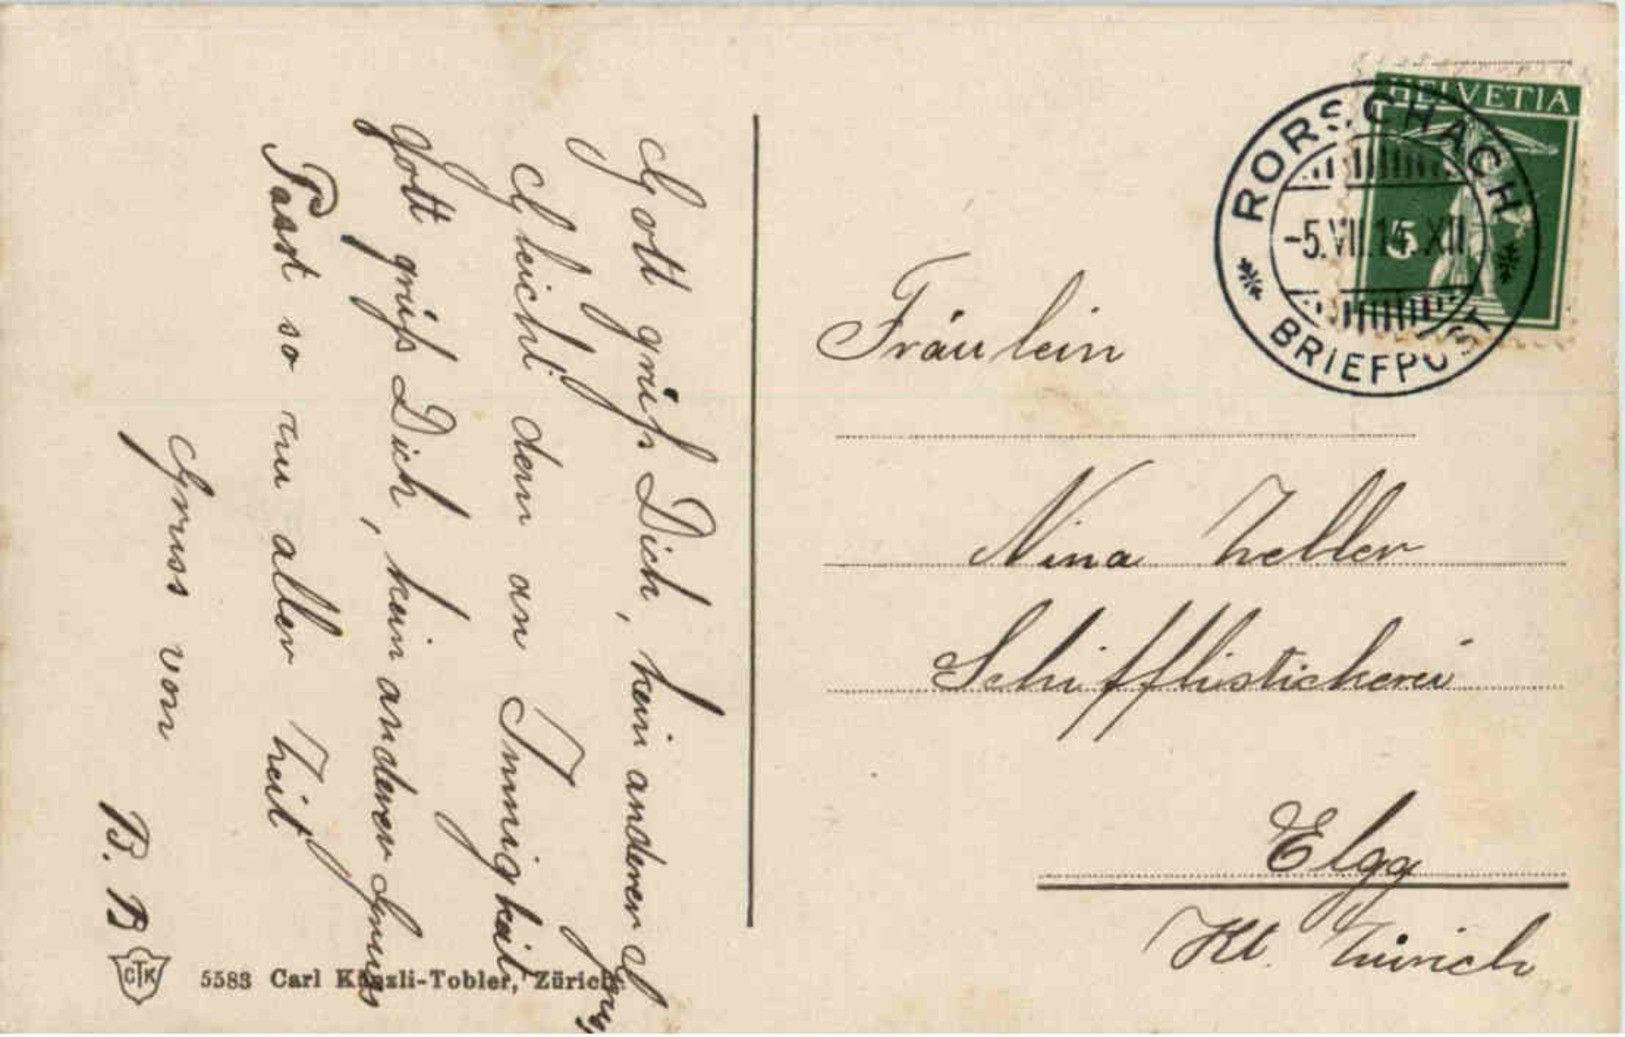 Gott grüß Dich, kein anderer Grus
Gleicht dem an Innigkeit
Gott grüß Dich, kein anderer Gruss
Passt so zu aller Zeit
Gruss von
B. B
HELVETIA
RORSCHACH
-5.VII.14. XII
BRIEFPOST
Fräulein
Nina Zeller
Schifflistickerei
Elgg
Kt. Zürich
CTK
5583 Carl Künzli-Tobler, Zürich